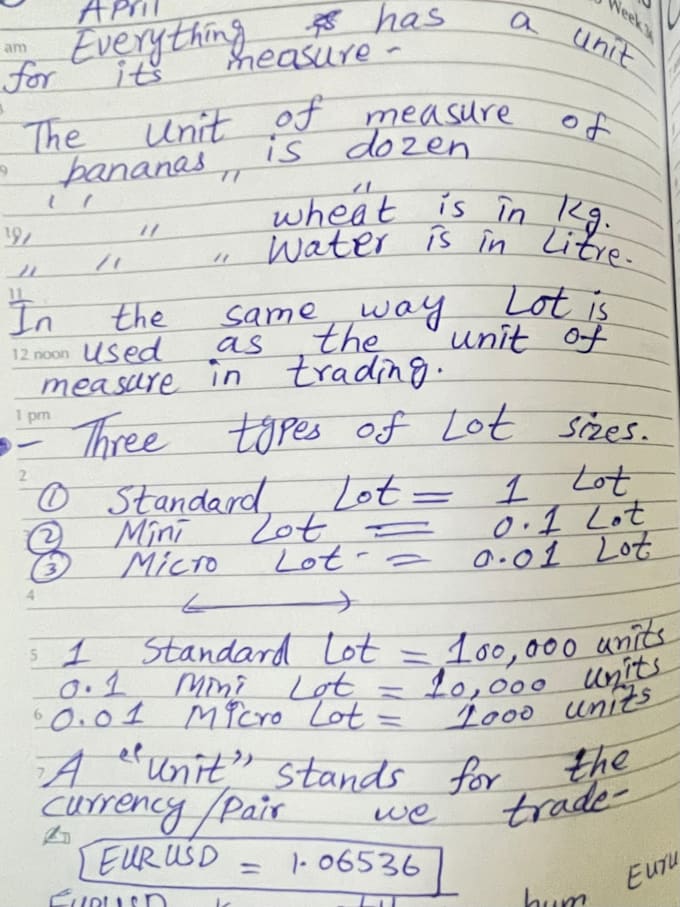 April
Week
am
Everything has a unit
for its measure -
The unit of measure of
9
bananas " is dozen
" " " wheat is in kg.
10
" " " Water is in Litre.
11
In the same way Lot is
12 noon used as the unit of
measure in trading.
1 pm
- Three types of Lot sizes.
2
① Standard Lot = 1 Lot
② Mini Lot = 0.1 Lot
③ Micro Lot - = 0.01 Lot
4
5 1 Standard Lot = 100,000 units
0.1 Mini Lot = 10,000 units
6 0.01 Micro Lot = 1000 units
7 A "Unit" stands for the
currency/Pair we trade-
EURUSD = 1.06536
EURUSD hum Euru